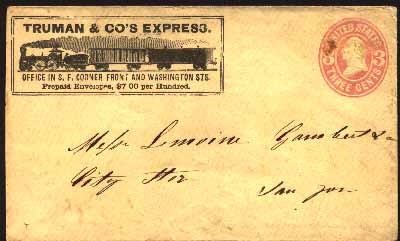 TRUMAN & CO'S EXPRESS.
OFFICE IN S. F. CORNER FRONT AND WASHINGTON STS.
Prepaid Envelopes, $7 00 per Hundred.
UNITED STATES
3 3
THREE CENTS
Mess Lemoine Gambert &
City Stor
San Jose